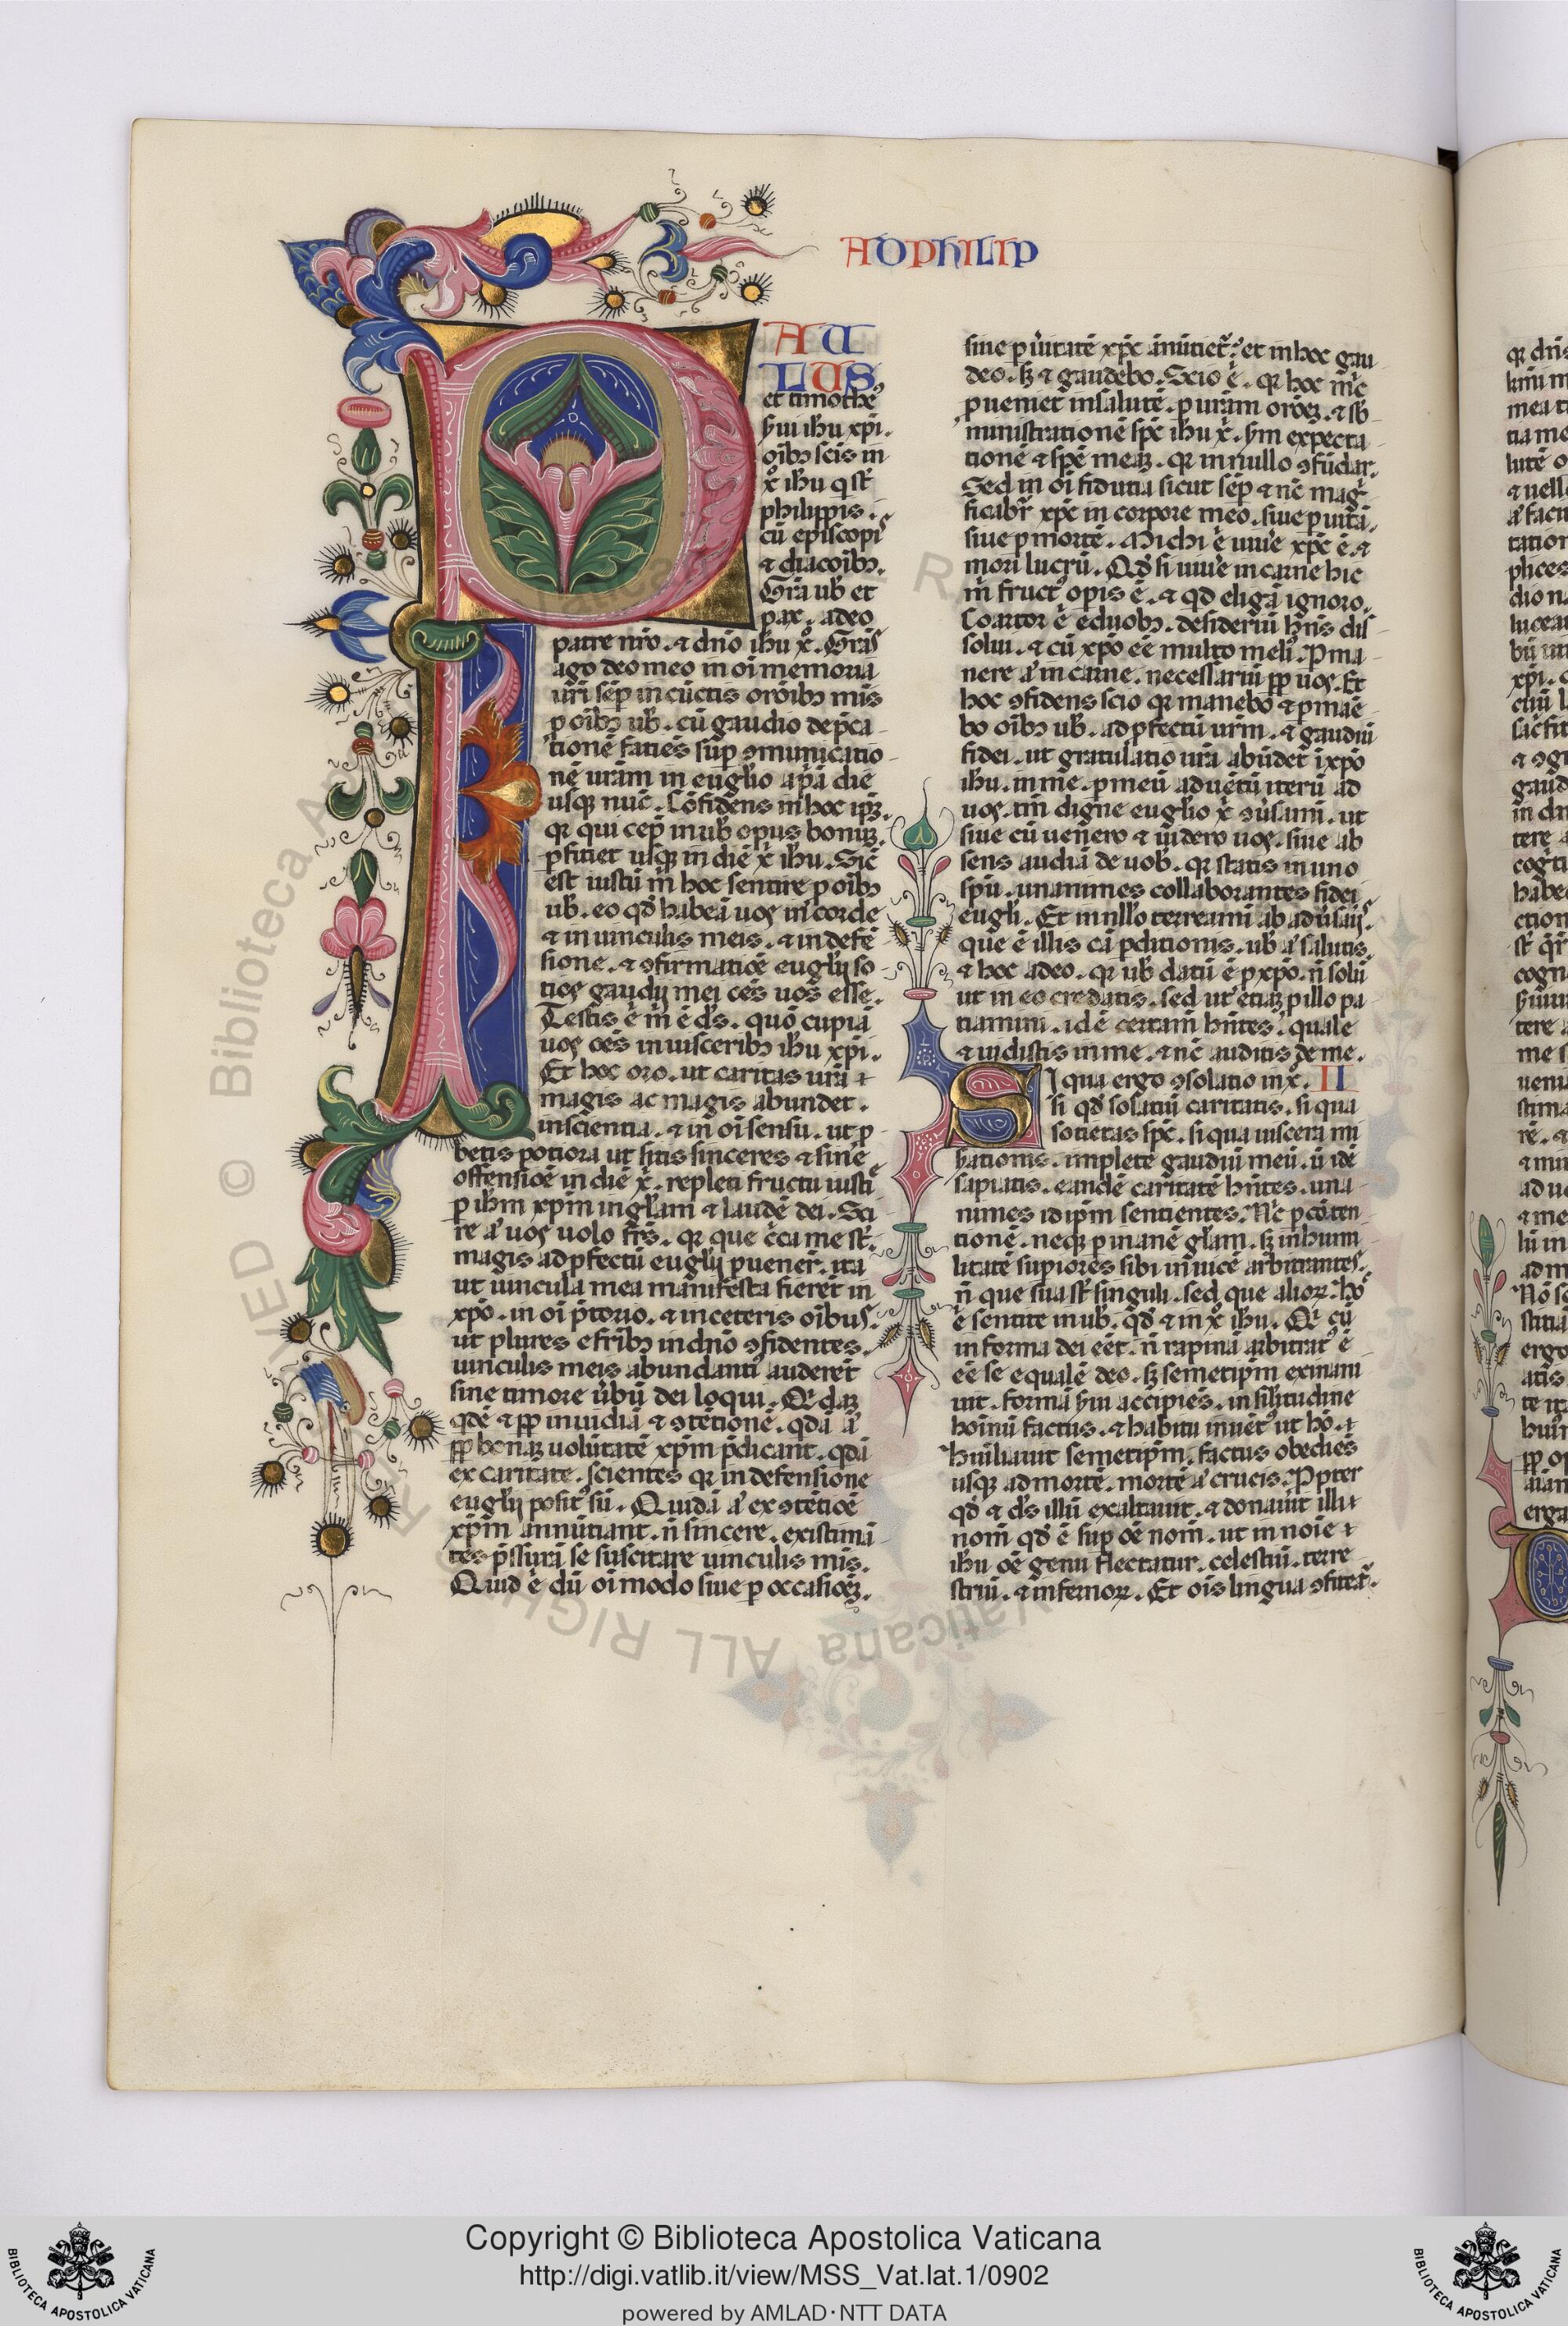 AD PHILIP
PAU
LUS
et timothe᷒
s̄ui ihu xpi.
oib᷒ scīs in
x̊ ihu q st̄
philippis.
cū episcopis
⁊ diacoīb᷒.
Grā ub̄ et
pax. a deo
patre nr̄o. ⁊ dn̄o ihu x̊. Grās
ago deo meo in oī memoria
uri sēp in cūctis orōib᷒ mīs
p oīb᷒ ub̄. cū gaudio dep̄ca
tionē faciēs sup 9municatio
nē urām in euglīo ap̄a die
usq nūc. Cōfidens in hoc ipz.
qr qui cep̄ in ub̄ opus bonuz.
pfitiet usq in diē x̄ ihu. Sic̄
est iustū m̄ hoc sentire p oīb᷒
ub̄. eo qd̄ habeā uos in corde
⁊ in uinculis meis. ⁊ in defē
sione. ⁊ 9firmatiōē euglij so
tios gaudij mei oēs uos esse.
Testis ē m̄ ē ds̄. quō cupiā
uos oēs in uisceribus ihu xpi.
Et hoc oro. ut caritas urā
magis ac magis abundet.
in scientia. ⁊ in oī sensu. ut p
betis potiora ut sitis sinceres ⁊ sine
offensiōē in diē x̄. repleti fructu iusti
p ihm xpm in glam ⁊ laudē dei. Sci
re a' uos uolo frs̄. qr que c̄ca me st̄.
magis ad pfectū euglij puener̄. ita
ut uincula mea manifesta fierēt in
xpō. in oī p̄torio. ⁊ in ceteris oībus.
ut plures e frīb᷒ in dn̄o 9fidentes.
uinculis meis abundanti᷒ auderēt
sine timore ūbū dei loqui. Qdaz
qdē ⁊ pp inuidiā ⁊ 9tētionē. qdā a'
pp bonaz uolūtatē xpm p̄dicant. qdā
ex caritate. scientes qr in defensione
euglij posit᷒ sū. Quidā a' ex 9tētiōē
xpm annūtiant. n̄ sincere. existimā
tes p̄ssurā se suscitare uinculis mīs.
Quid ē dū oī modo siue p occasiōēz.
siue p uitatē xpc̄ ānūtiet᷒. et in hoc gau
deo. sz ⁊ gaudebo. Scio ē. qr hoc m̄
pueniet in salutē. p urām orōēz. ⁊ sb̄
ministrationē spc̄ ihu x̄. s̄m expecta
tionē ⁊ spē meaz. qr in nullo 9fūdar.
Sed in oī fidutia sicut sēp ⁊ nc̄ mag
ficabr̄ xpc̄ in corpore meo. siue p uitā.
siue p mortē. Michi ē uiue xpc̄ ē. ⁊
mori lucrū. Qd̄ si uiue in carne hic
m̄ fruct᷒ opis ē. ⁊ qd eligā ignoro.
Coartor ē e duob᷒. desideriū hn̄s dis
solui. ⁊ cū xpō ēē multo meli᷒. Pma
nere a' in carne. necessariū pp uos. Et
hoc 9fidens scio qr manebo ⁊ pmaē
bo oīb᷒ ub̄. ad pfectū urm̄. ⁊ gaudiū
fidei. ut gratulatio urā abūdet ī xpō
ihu. in me. p meū aduētū iterū ad
uos. tm̄ digne euglīo x̄ 9ūsami. ut
siue cū uenero ⁊ uidero uos. siue ab
sens audiā de uob̄. qr statis in uno
spū. unanimes collaborantes fidei
eugli. Et in nullo terreami ab aduīsarijs.
que ē illis cā pditionis. ub̄ a' salutis.
⁊ hoc a deo. qr ub̄ datū ē p xpō. n̄ solū
ut in eo credatis. sed ut etiaz p illo pa
tiamini. idē certam̄ hn̄tes. quale
⁊ uidistis in me. ⁊ nc̄ auditis de me.
Si qua ergo 9solatio in x̄. II
si qd̄ solatiū caritatis. si qua
sotietas spc̄. si qua uiscera mi
sationis. implete gaudiū meū. ū idē
sapiatis. eandē caritatē hn̄tes. una
nimes id ipm̄ sentientes. Nc̄ p cōten
tionē. neq p inanē glam̄. sz in hum
litate supiores sibi inuicē arbitrantes.
n̄ que sua st̄ singuli. sed que alioꝝ. Ho
ē sentite in ub̄. qd̄ ⁊ in x̊ ihu. Qr cū
in forma dei eēt. n̄ rapinā arbitrat᷒ ē
ēē se equalē deo. sz semetipm̄ exinani
uit. formā s̄ui accipiēs. in silitudinē
hoīnū factus. ⁊ habitu inuēt᷒ ut hō.
Huiliauit semetipm̄. factus obediēs
usq ad mortē. mortē a' crucis. Ppter
qd̄ ⁊ ds̄ illū exaltauit. ⁊ donauit illi
nom̄ qd̄ ē sup oē nom̄. ut in noīe
ihu oē genu flectatur. celestiū. terre
striū. ⁊ infernoꝝ. Et oīs lingua 9fiteā.
Copyright © Biblioteca Apostolica Vaticana
http://digi.vatlib.it/view/MSS_Vat.lat.1/0902
powered by AMLAD·NTT DATA
BIBLIOTECA APOSTOLICA VATICANA
BIBLIOTECA APOSTOLICA VATICANA